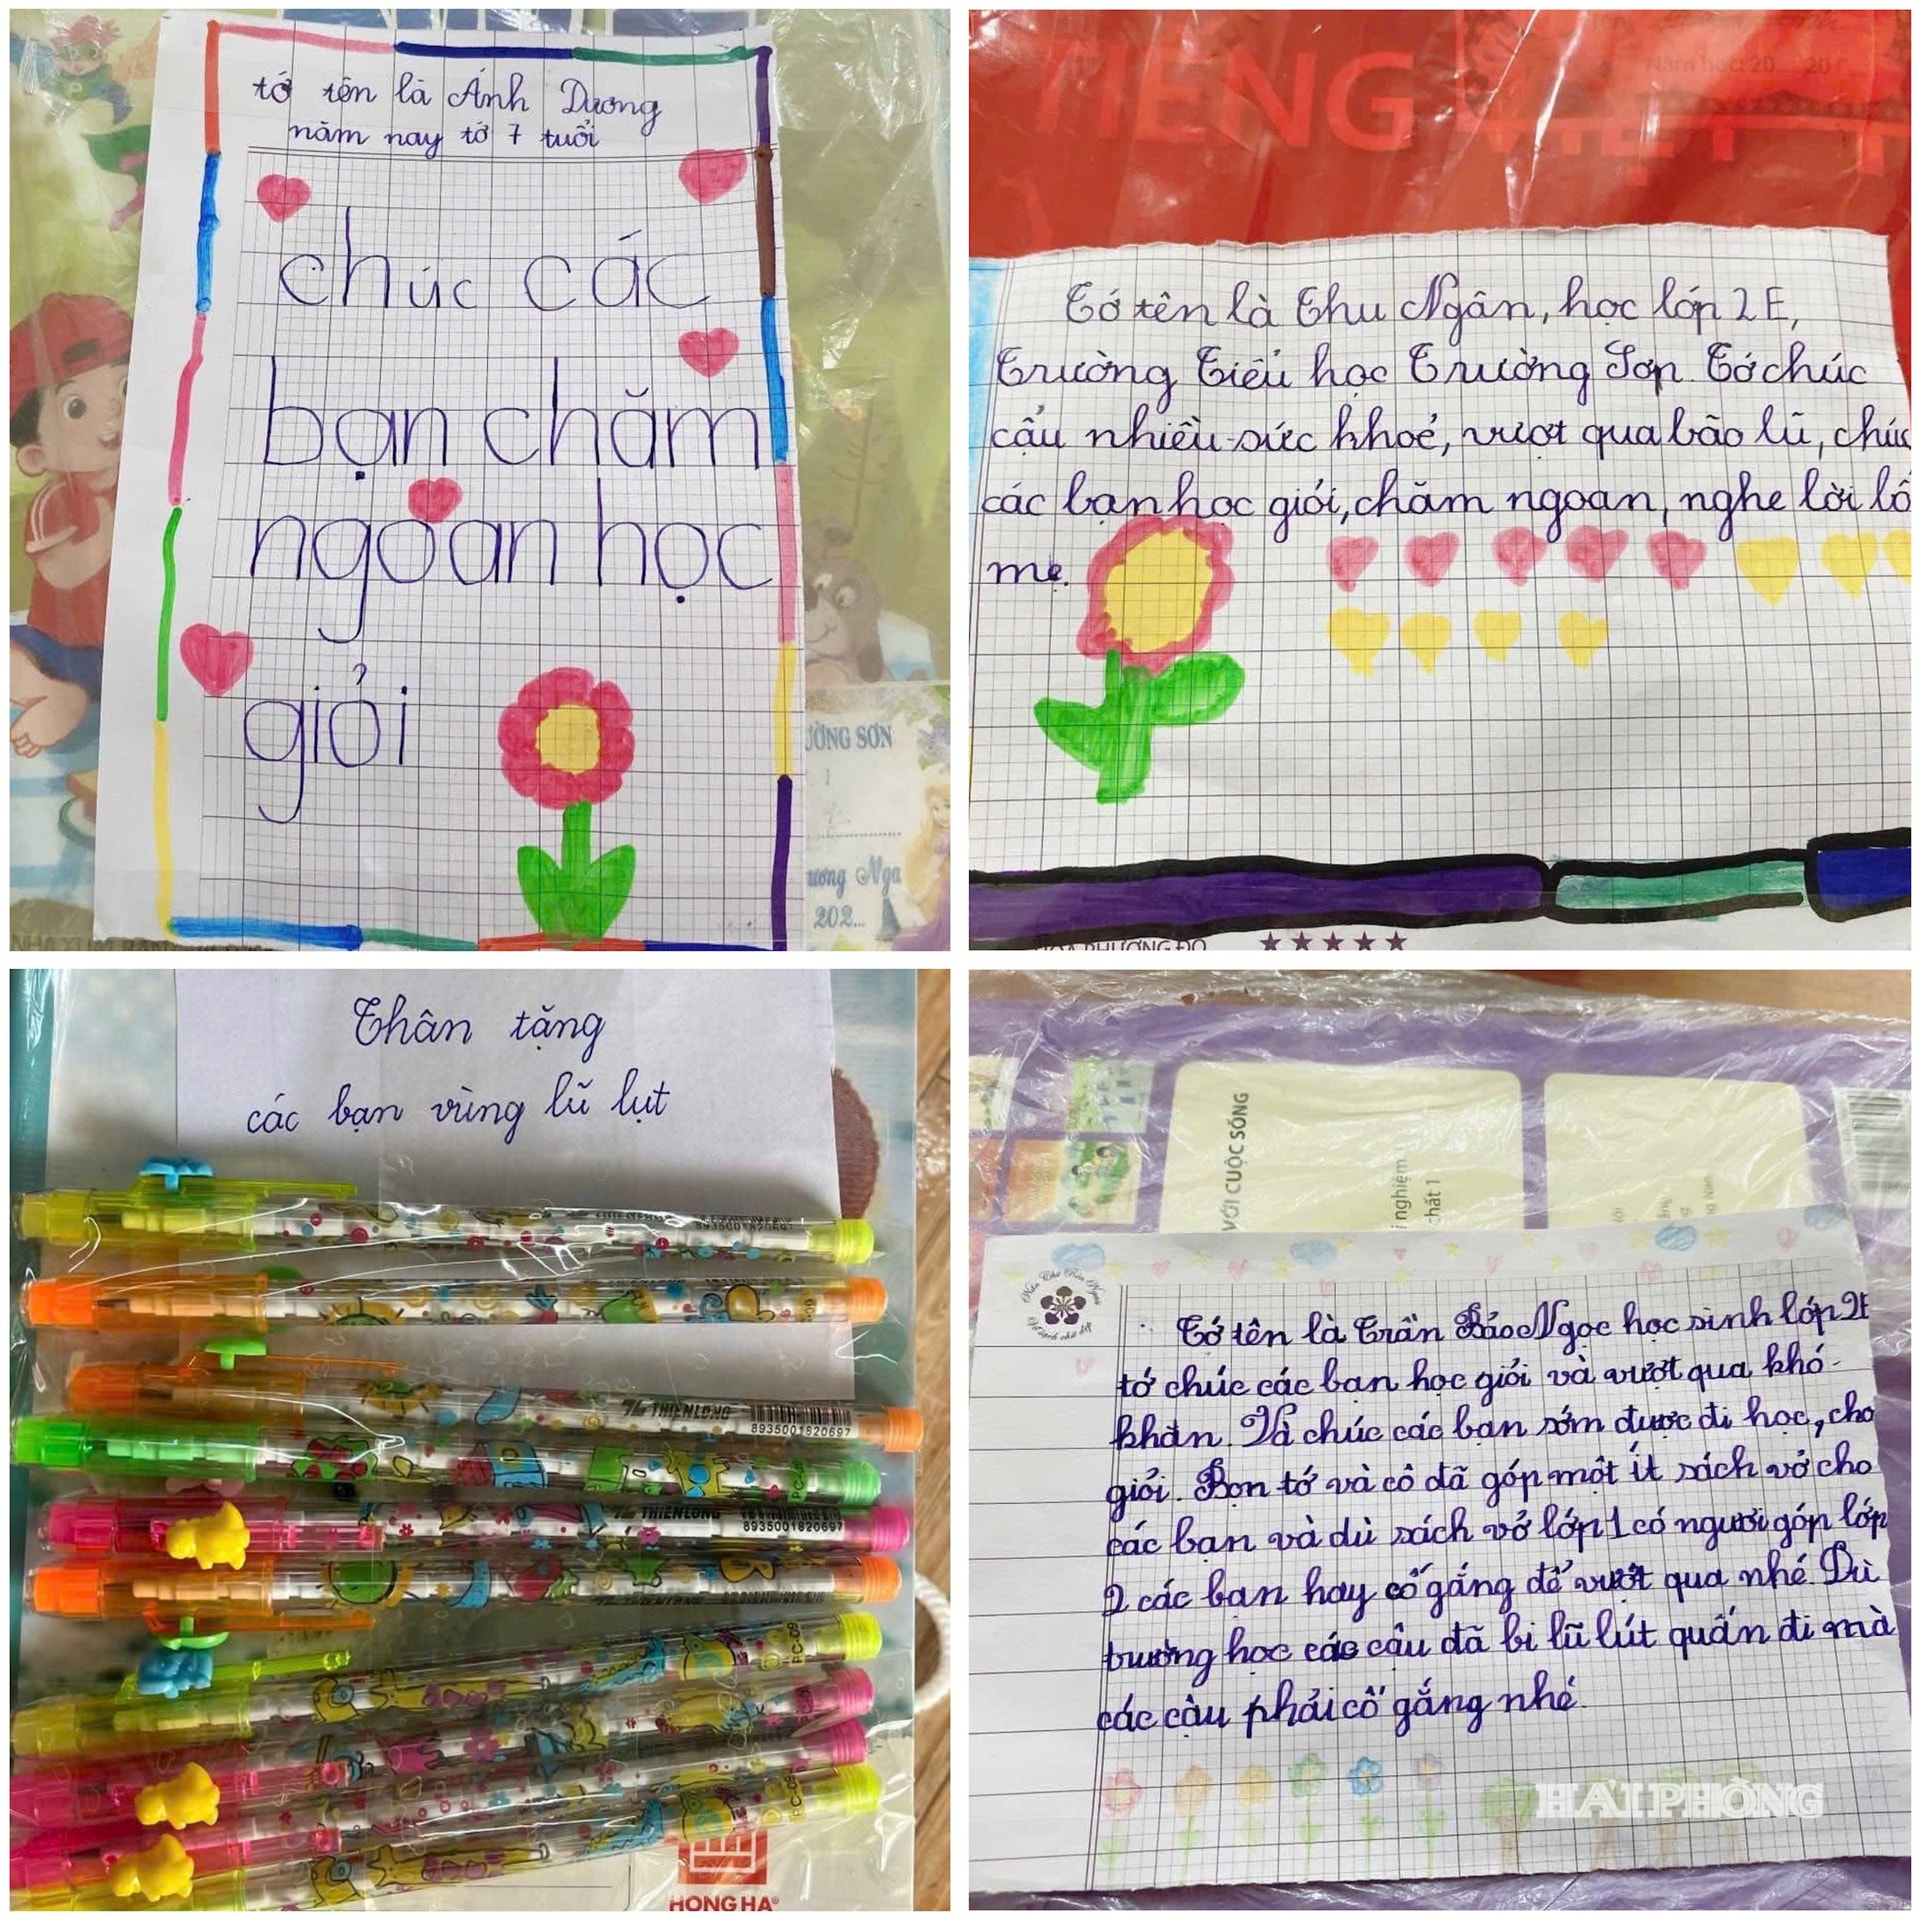 tớ tên là Ánh Dương
năm nay tớ 7 tuổi
chúc các
bạn chăm
ngoan học
giỏi
ƯỜNG SƠN
ương Nga
202...
TIẾNG VIỆT
Năm học: 20 20
Tớ tên là Thu Ngân, học lớp 2E,
Trường Tiểu học Trường Sơn. Tớ chúc
cậu nhiều sức khoẻ, vượt qua bão lũ, chúc
các bạn học giỏi, chăm ngoan, nghe lời bố
mẹ.
HOA PHƯỢNG ĐỎ
Thân tặng
các bạn vùng lũ lụt
8935001820697
THIENLONG
8935001820697
THIENLONG
8935001820697
PC-09
PC-09
HONG HA
VỚI CUỘC SỐNG
i nghiệm
chất 1
Tớ tên là Trần Bảo Ngọc học sinh lớp 2E
tớ chúc các bạn học giỏi và vượt qua khó
khăn. Và chúc các bạn sớm được đi học, cho
giỏi. Bọn tớ và cô đã góp một ít sách vở cho
các bạn và dù sách vở lớp 1 có người góp lớp
2 các bạn hay cố gắng để vượt qua nhé. Dù
trường học các cậu đã bi lũ lút quấn đi mà
các cậu phải cố gắng nhé.
HẢI PHÒNG